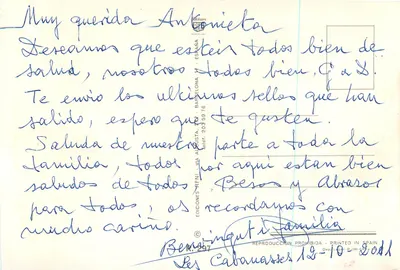 Muy querida Antonieta
Deseamos que esteis todos bien de
salud, nosotros todos bien, G a D.
Te envio los ultimos sellos que han
salido, espero que te gusten.
Saluda de nuestra parte a toda la
familia, todos por aqui estan bien
saludos de todos Besos y Abrazos
para todos, os recordamos con
mucho cariño.
Familia
Les Cabanasses 12-10-2011
REPRODUCCION PROHIBIDA - PRINTED IN SPAIN